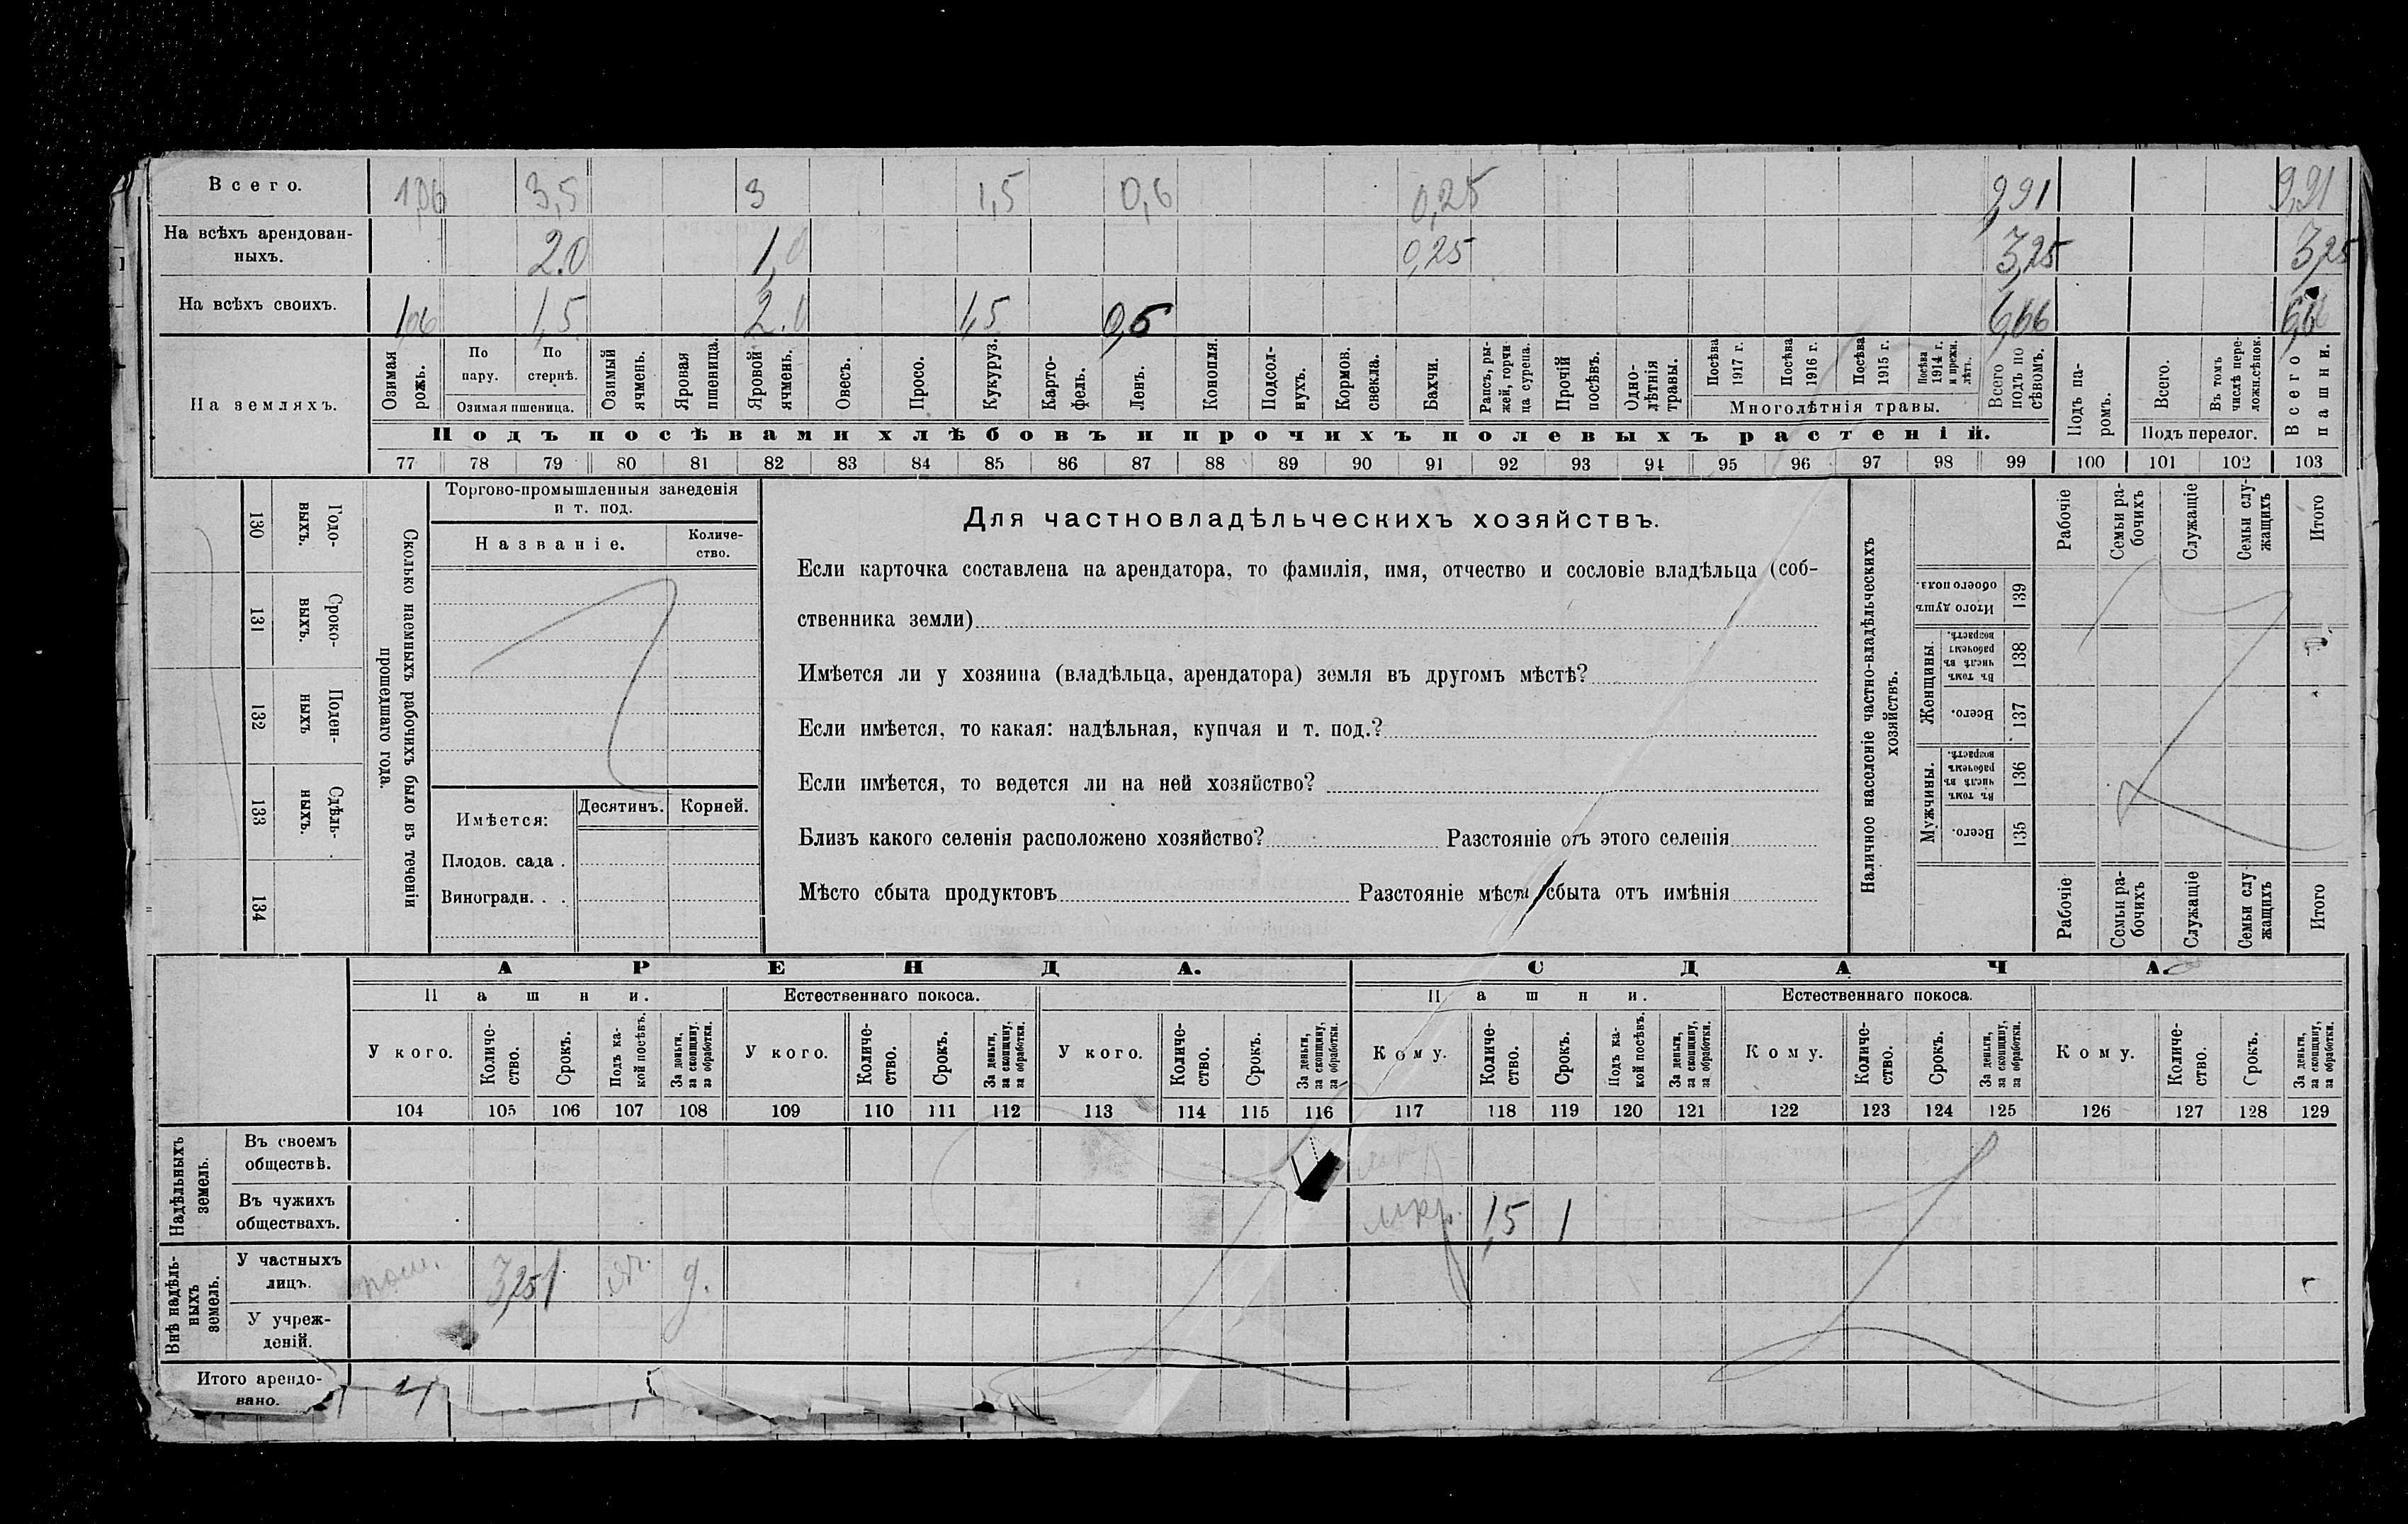 Всего. 1,06 3,5 3 1,5 0,6 0,25 9,91 9,91
На всѣхъ арендован-
ныхъ. 2.0 1,0 0,25 3,25 3,25
На всѣхъ своихъ. 1,06 1,5 2.0 1,5 0,6 6,66 6,66
На земляхъ.
Озимая рожь.
По пару.
По стернѣ.
Озимая пшеница.
Озимый ячмень.
Яровая пшеница.
Яровой ячмень.
Овесъ.
Просо.
Кукуруз.
Карто-
фель.
Ленъ.
Конопля.
Подсол-
нухъ.
Кормов.
свекла.
Бахчи.
Рапсъ, ры-
жей, горчи-
ца сурепа.
Прочій
посѣвъ.
Одно-
лѣтнія
травы.
Посѣва
1917 г.
Посѣва
1916 г.
Посѣва
1915 г.
Посѣва
1914 г.
и прежн.
лѣтъ.
Многолѣтнія травы.
Всего
подъ по
сѣвомъ.
Подъ па-
ромъ.
Всего.
Въ томъ
числѣ пере-
ложн.сѣнок.
Подъ перелог.
Всего
пашни.
Подъ посѣвами хлѣбовъ и прочихъ полевыхъ растеній.
77 78 79 80 81 82 83 84 85 86 87 88 89 90 91 92 93 94 95 96 97 98 99 100 101 102 103
130 Годо-
выхъ.
131 Сроко-
выхъ.
132 Поден-
ныхъ
133 Сдѣль-
ныхъ.
134
Сколько наемныхъ рабочихъ было въ теченіи
прошедшаго года.
Торгово-промышленныя заведенія
и т. под.
Названіе.
Количе-
ство.
Имѣется:
Десятинъ.
Корней.
Плодов. сада .
Виноградн. . .
Для частновладѣльческихъ хозяйствъ.
Если карточка составлена на арендатора, то фамилія, имя, отчество и сословіе владѣльца (соб-
ственника земли)
Имѣется ли у хозяина (владѣльца, арендатора) земля въ другомъ мѣстѣ?
Если имѣется, то какая: надѣльная, купчая и т. под.?
Если имѣется, то ведется ли на ней хозяйство?
Близъ какого селенія расположено хозяйство? Разстояніе отъ этого селенія
Мѣсто сбыта продуктовъ Разстояніе мѣста сбыта отъ имѣнія
Наличное населеніе частно-владѣльческихъ
хозяйствъ.
Рабочіе
Семьи ра-
бочихъ
Служащіе
Семьи слу-
жащихъ
Итого
Итого душъ
обоего пола.
139
Женщины.
Въ томъ
числѣ въ
рабочемъ
возрастѣ.
138
Всего.
137
Мужчины.
Въ томъ
числѣ въ
рабочемъ
возрастѣ.
136
Всего.
135
Рабочіе
Семьи ра-
бочихъ
Служащіе
Семьи слу
жащихъ
Итого
АРЕНДА.
СДАЧА.
Пашни.
Естественнаго покоса.
Пашни.
Естественнаго покоса.
У кого.
Количе-
ство.
Срокъ.
Подъ ка-
кой посѣвъ.
За деньги,
за скопщину,
за обработки.
У кого.
Количе-
ство.
Срокъ.
За деньги,
за скопщину,
за обработки.
У кого.
Количе-
ство.
Срокъ.
За деньги,
за скопщину,
за обработки.
Кому.
Количе-
ство.
Срокъ.
Подъ ка-
кой посѣвъ.
За деньги,
за скопщину,
за обработки.
Кому.
Количе-
ство.
Срокъ.
За деньги,
за скопщину,
за обработки.
Кому.
Количе-
ство.
Срокъ.
За деньги,
за скопщину,
за обработки.
104 105 106 107 108 109 110 111 112 113 114 115 116 117 118 119 120 121 122 123 124 125 126 127 128 129
Надѣльныхъ
земель.
Въ своемъ
обществѣ.
Въ чужихъ
обществахъ. 1,5 1
Внѣ надѣль-
ныхъ
земель.
У частныхъ
лицъ. 3,25 1
У учреж-
деній.
Итого арендо-
вано.